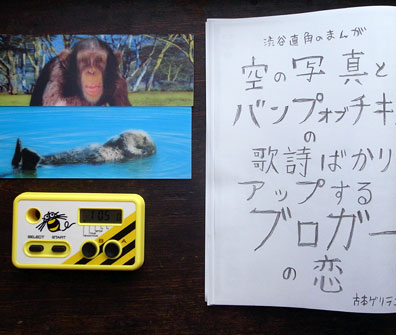 渋谷直角のまんが
空の写真と
バンプオブチキ
の
歌詩ばかり
アップする
ブロガー
の恋
SELECT START